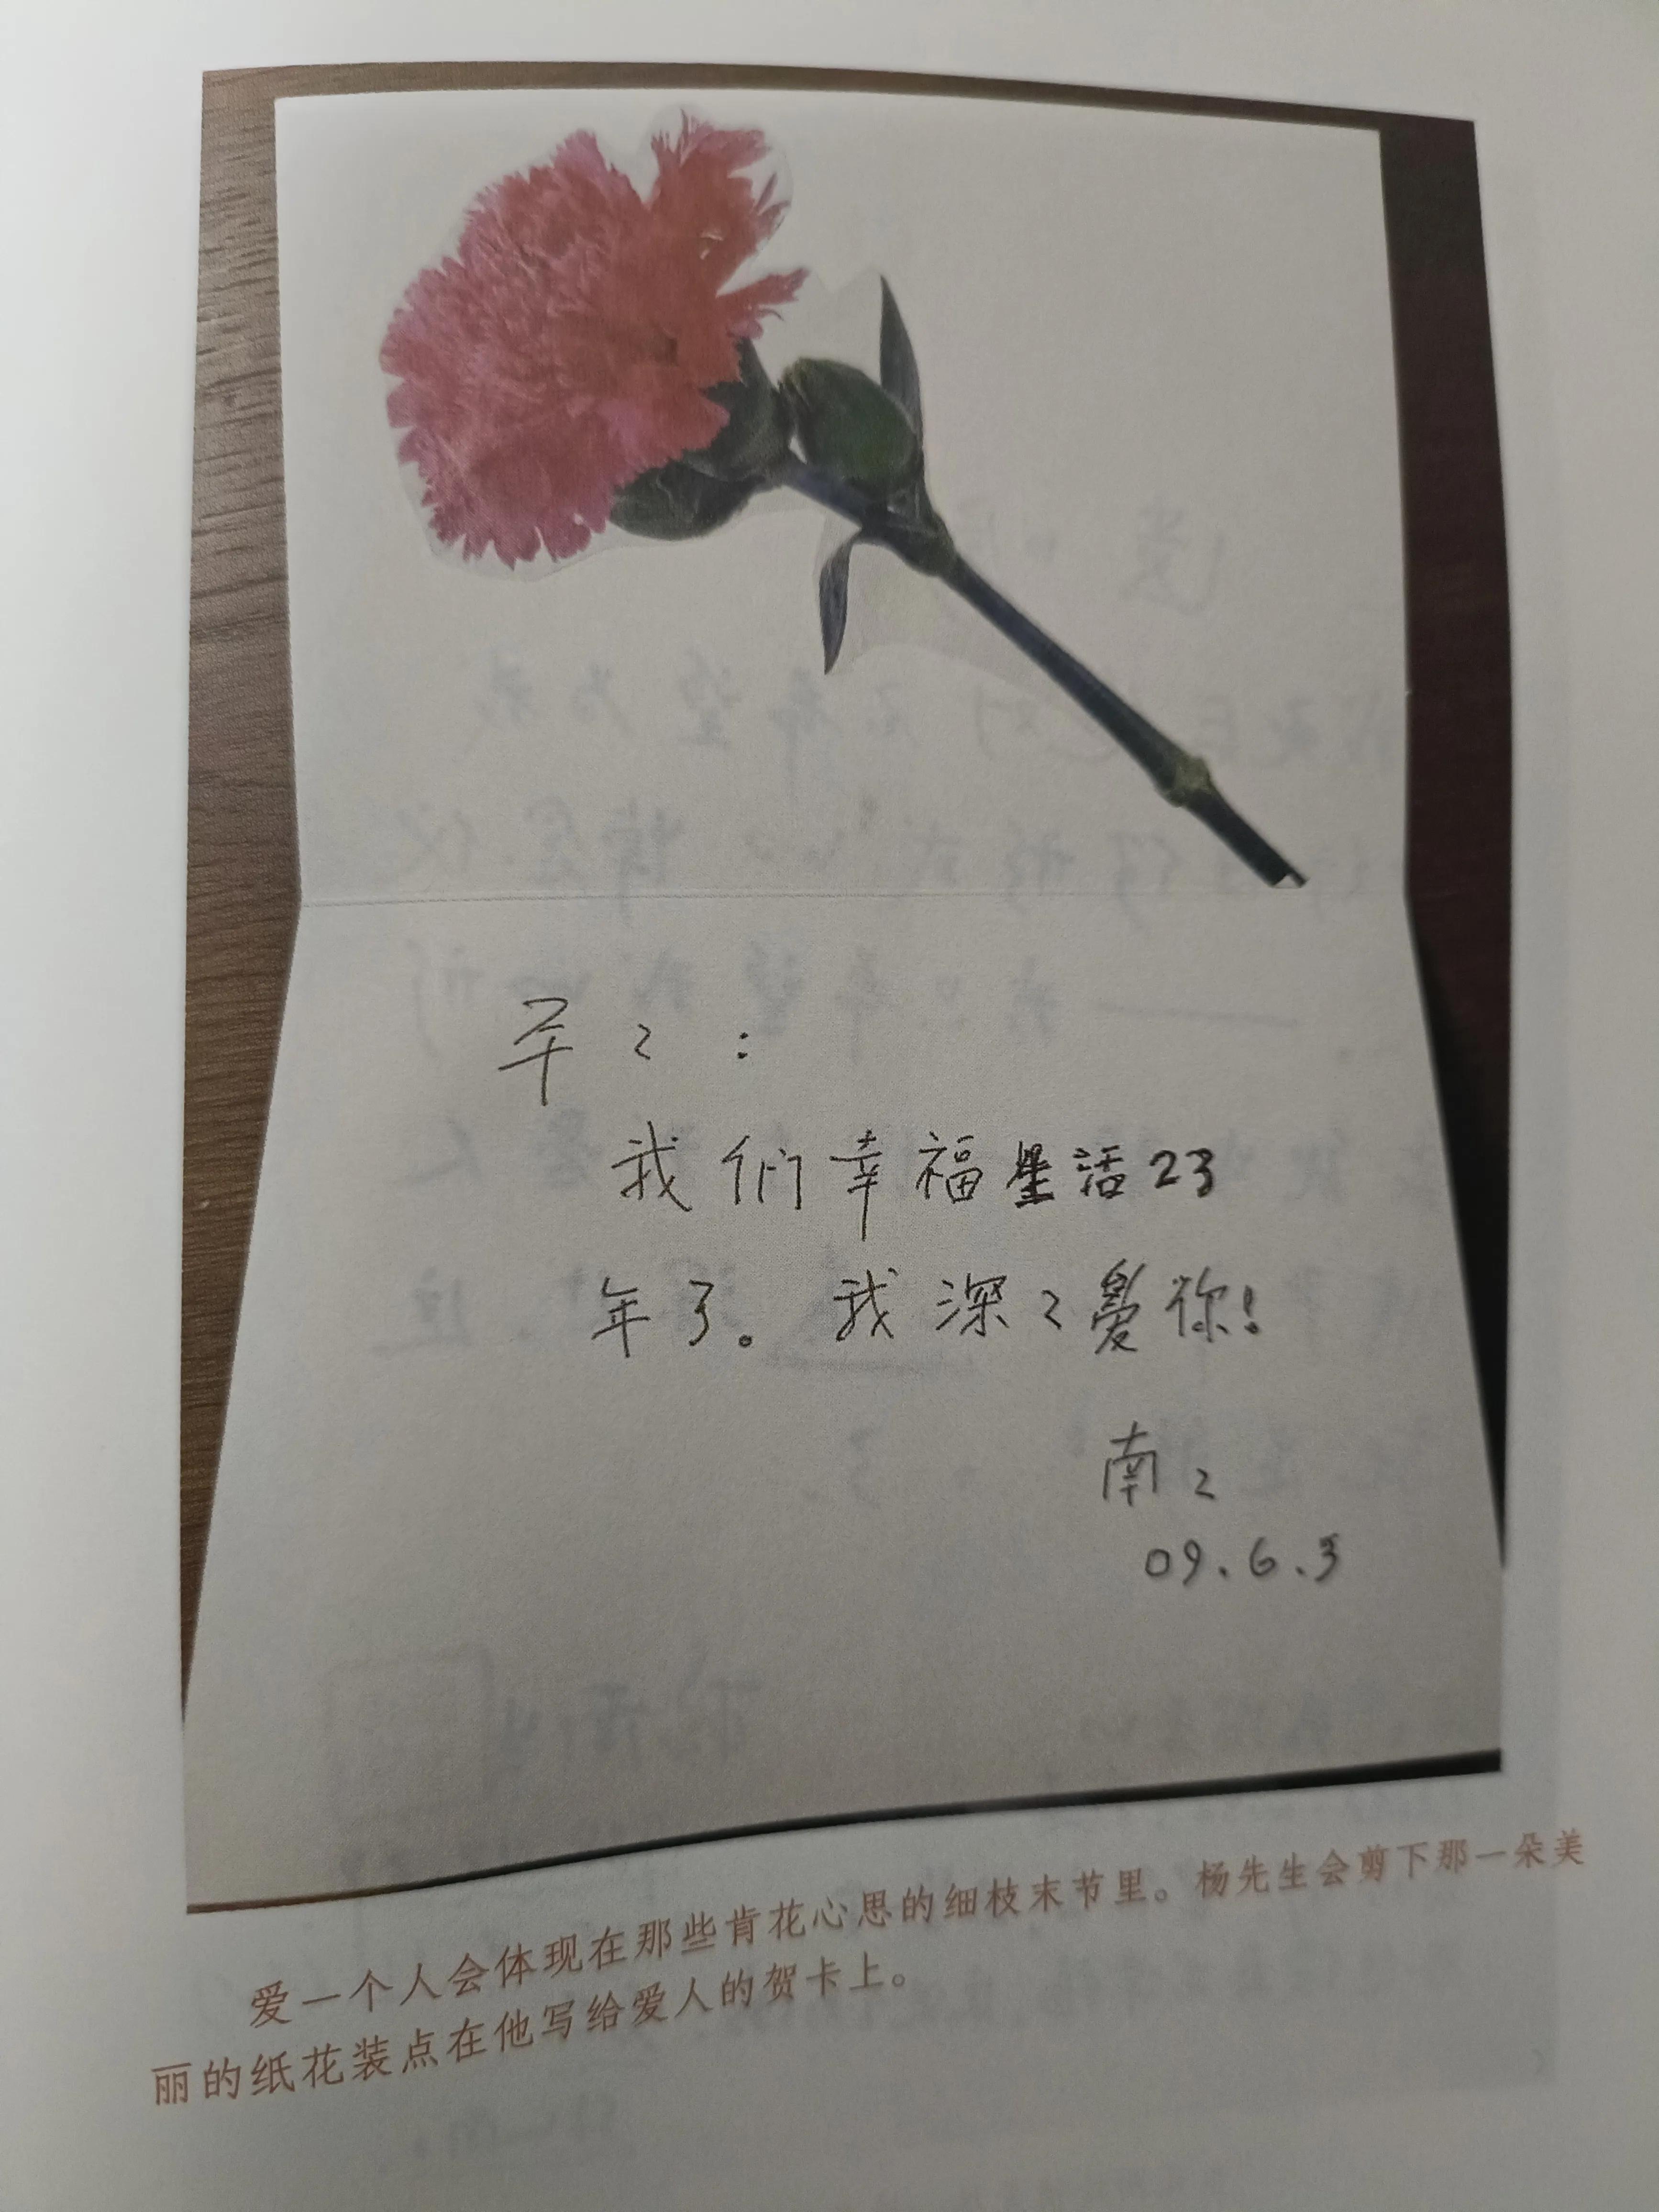 平々：
我们幸福生活23
年了。我深々愛你！
南々
09.6.3
爱一个人会体现在那些肯花心思的细枝末节里。杨先生会剪下那一朵美
丽的纸花装点在他写给爱人的贺卡上。